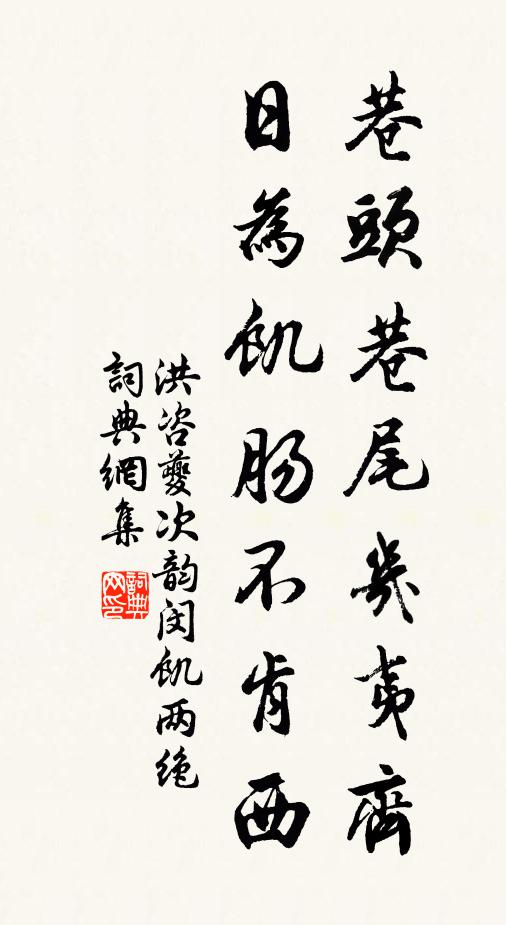 巷頭巷尾幾夷齊
日為飢腸不肯西
洪咨夔次韵闵飢两绝
詞典網集
詞典
网印